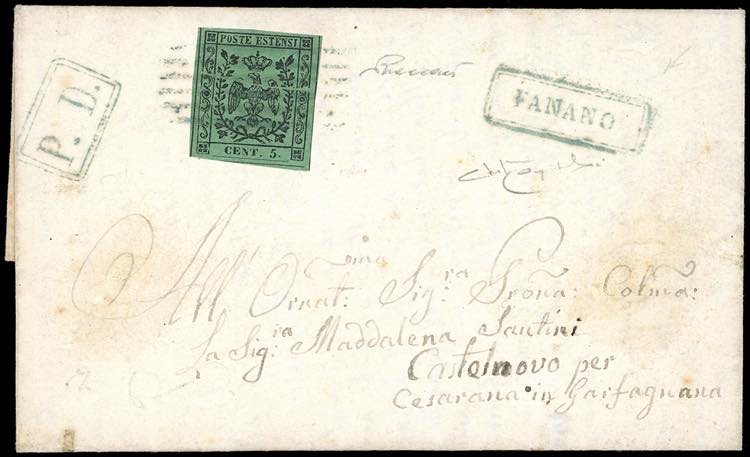 POSTE ESTENSI
CENT. 5.
P. D.
FANANO
All' Ornat:ma Sig:ra Proña: Colma:
La Sig:ra Maddalena Santini
Castelnovo per
Cesarana in Garfagnana